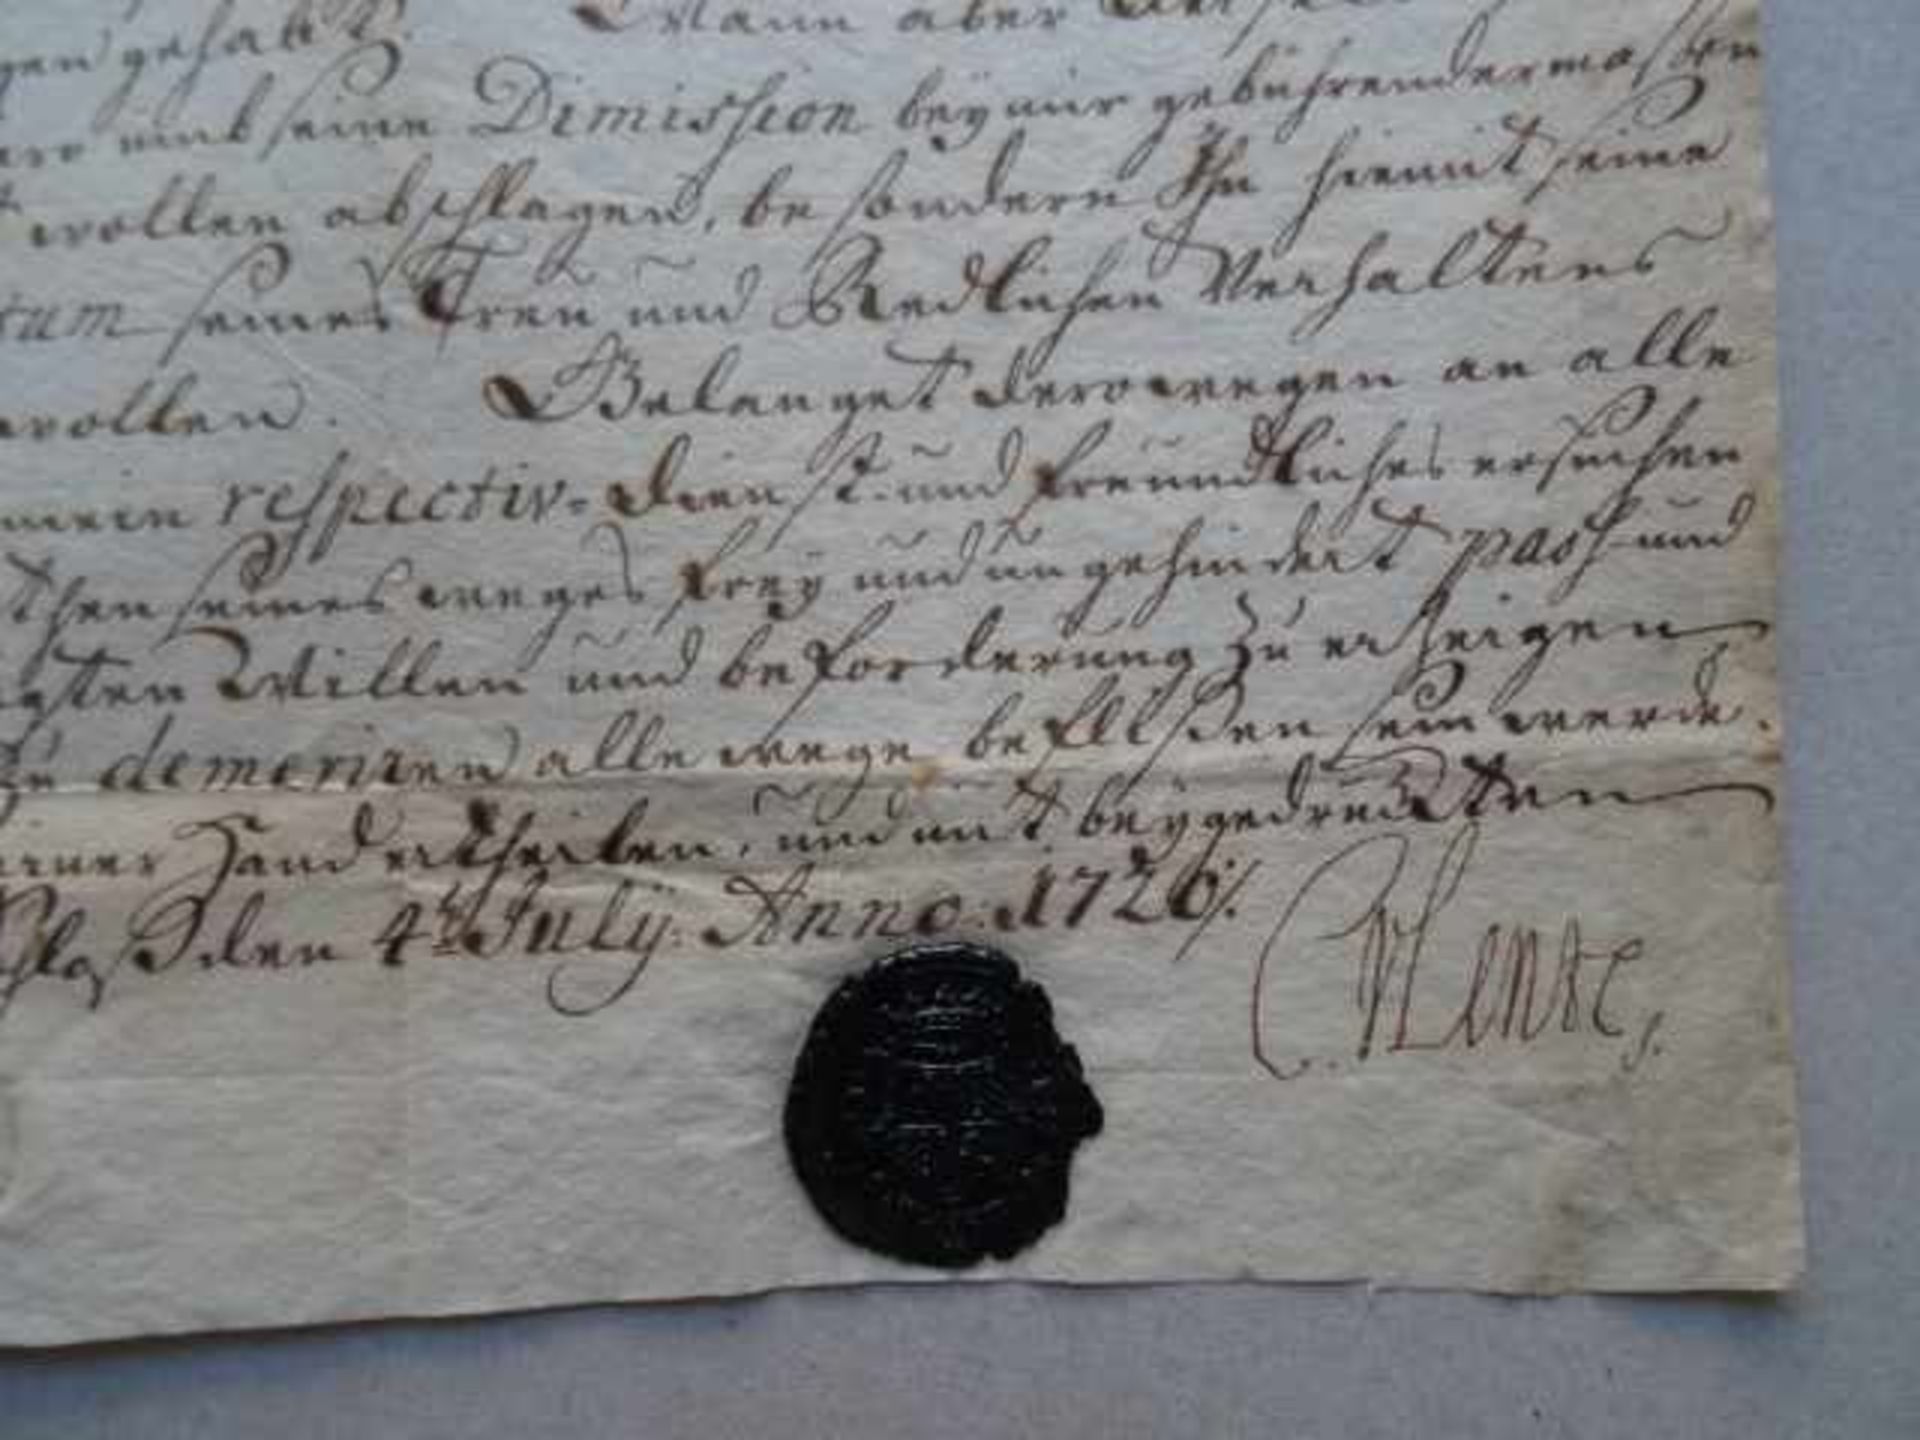 gen gehabt. Wann aber
und seine Dimission bey mir gebührendermaßen
wollen abschlagen, besondern Ihn hiemit seine
tum seines Treu und Redlichen Verhaltens
wollen. Belanget derowegen an alle
mein respectiv- dienst- und freundliches ersuchen
seines weges frey und ungehindert pass- und
gten Willen und beforderung zu erzeigen
zu demeriren allewege befließen sein werde.
Hand ertheilen, und mit beygedrucktem
den 4t July: Anno: 1726